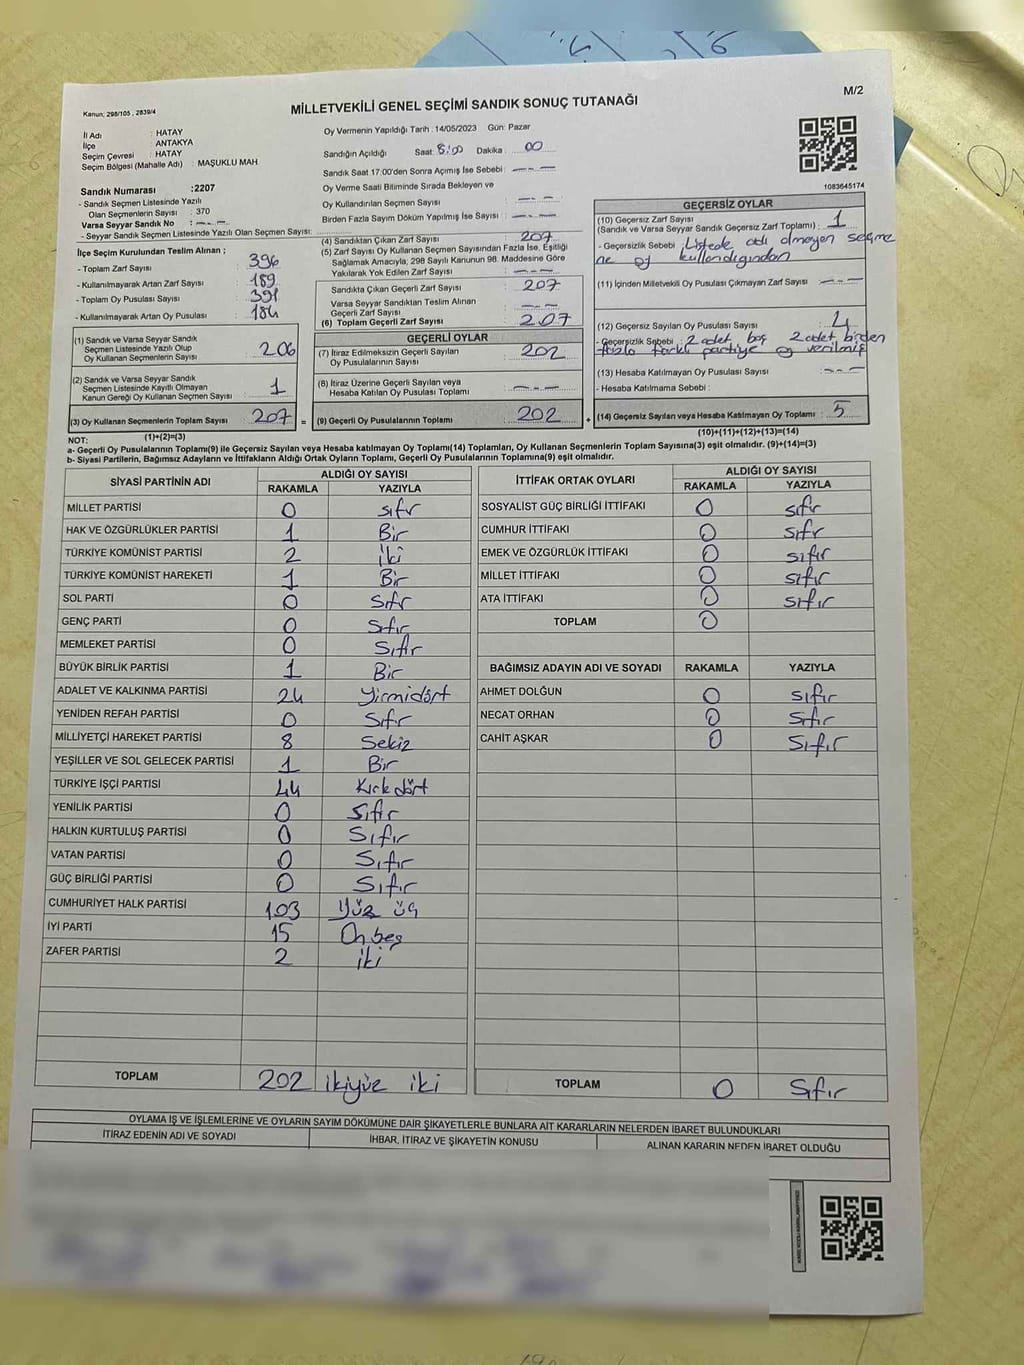 M/2
Kanun; 298/105 , 2839/4
MİLLETVEKİLİ GENEL SEÇİMİ SANDIK SONUÇ TUTANAĞI
İl Adı : HATAY
İlçe ANTAKYA
Seçim Çevresi : HATAY
Seçim Bölgesi (Mahalle Adı) : MAŞUKLU MAH.
Sandık Numarası :2207
- Sandık Seçmen Listesinde Yazılı
Olan Seçmenlerin Sayısı : 370
Varsa Seyyar Sandık No : ---
- Seyyar Sandık Seçmen Listesinde Yazılı Olan Seçmen Sayısı:
Oy Vermenin Yapıldığı Tarih : 14/05/2023 Gün: Pazar
Sandığın Açıldığı Saat: 8:00 Dakika : 00
Sandık Saat 17:00'den Sonra Açılmış İse Sebebi : ---
Oy Verme Saati Bitiminde Sırada Bekleyen ve
Oy Kullandırılan Seçmen Sayısı ---
Birden Fazla Sayım Döküm Yapılmış İse Sayısı : ---
1083645174
İlçe Seçim Kurulundan Teslim Alınan ;
- Toplam Zarf Sayısı : 396
- Kullanılmayarak Artan Zarf Sayısı : 189
- Toplam Oy Pusulası Sayısı : 391
- Kullanılmayarak Artan Oy Pusulası : 184
(1) Sandık ve Varsa Seyyar Sandık
Seçmen Listesinde Yazılı Olup
Oy Kullanan Seçmenlerin Sayısı : 206
(2) Sandık ve Varsa Seyyar Sandık
Seçmen Listesinde Kayıtlı Olmayan
Kanun Gereği Oy Kullanan Seçmen Sayısı : 1
(3) Oy Kullanan Seçmenlerin Toplam Sayısı : 207 =
(1)+(2)=(3)
(4) Sandıktan Çıkan Zarf Sayısı : 207
(5) Zarf Sayısı Oy Kullanan Seçmen Sayısından Fazla İse, Eşitliği
Sağlamak Amacıyla, 298 Sayılı Kanunun 98. Maddesine Göre
Yakılarak Yok Edilen Zarf Sayısı : ---
Sandıkta Çıkan Geçerli Zarf Sayısı : 207
Varsa Seyyar Sandıktan Teslim Alınan
Geçerli Zarf Sayısı : ---
(6) Toplam Geçerli Zarf Sayısı : 207
GEÇERLİ OYLAR
(7) İtiraz Edilmeksizin Geçerli Sayılan
Oy Pusulalarının Sayısı : 202
(8) İtiraz Üzerine Geçerli Sayılan veya
Hesaba Katılan Oy Pusulası Toplamı : ---
(9) Geçerli Oy Pusulalarının Toplamı : 202 +
GEÇERSİZ OYLAR
(10) Geçersiz Zarf Sayısı
(Sandık ve Varsa Seyyar Sandık Geçersiz Zarf Toplamı) : 1
- Geçersizlik Sebebi : Listede adı olmayan seçme
ne oy kullandığından
(11) İçinden Milletvekili Oy Pusulası Çıkmayan Zarf Sayısı : ---
(12) Geçersiz Sayılan Oy Pusulası Sayısı : 4
- Geçersizlik Sebebi : 2 adet boş 2 adet birden
fazla farklı partiye oy verilmiş
(13) Hesaba Katılmayan Oy Pusulası Sayısı : ---
- Hesaba Katılmama Sebebi :
(14) Geçersiz Sayılan veya Hesaba Katılmayan Oy Toplamı : 5
(10)+(11)+(12)+(13)=(14)
NOT:
a- Geçerli Oy Pusulalarının Toplamı(9) ile Geçersiz Sayılan veya Hesaba katılmayan Oy Toplamı(14) Toplamları, Oy Kullanan Seçmenlerin Toplam Sayısına(3) eşit olmalıdır. (9)+(14)=(3)
b- Siyasi Partilerin, Bağımsız Adayların ve İttifakların Aldığı Oyların Toplamı, Geçerli Oy Pusulalarının Toplamına(9) eşit olmalıdır.
SİYASİ PARTİNİN ADI ALDIĞI OY SAYISI
RAKAMLA YAZIYLA
MİLLET PARTİSİ 0 sıfır
HAK VE ÖZGÜRLÜKLER PARTİSİ 1 Bir
TÜRKİYE KOMÜNİST PARTİSİ 2 iki
TÜRKİYE KOMÜNİST HAREKETİ 1 Bir
SOL PARTİ 0 Sıfır
GENÇ PARTİ 0 Sıfır
MEMLEKET PARTİSİ 0 Sıfır
BÜYÜK BİRLİK PARTİSİ 1 Bir
ADALET VE KALKINMA PARTİSİ 24 Yirmidört
YENİDEN REFAH PARTİSİ 0 Sıfır
MİLLİYETÇİ HAREKET PARTİSİ 8 Sekiz
YEŞİLLER VE SOL GELECEK PARTİSİ 1 Bir
TÜRKİYE İŞÇİ PARTİSİ 44 Kırk dört
YENİLİK PARTİSİ 0 Sıfır
HALKIN KURTULUŞ PARTİSİ 0 Sıfır
VATAN PARTİSİ 0 Sıfır
GÜÇ BİRLİĞİ PARTİSİ 0 Sıfır
CUMHURİYET HALK PARTİSİ 103 Yüz üç
İYİ PARTİ 15 On beş
ZAFER PARTİSİ 2 iki
TOPLAM 202 ikiyüz iki
İTTİFAK ORTAK OYLARI ALDIĞI OY SAYISI
RAKAMLA YAZIYLA
SOSYALİST GÜÇ BİRLİĞİ İTTİFAKI 0 sıfır
CUMHUR İTTİFAKI 0 sıfır
EMEK VE ÖZGÜRLÜK İTTİFAKI 0 sıfır
MİLLET İTTİFAKI 0 sıfır
ATA İTTİFAKI 0 sıfır
TOPLAM 0
BAĞIMSIZ ADAYIN ADI VE SOYADI RAKAMLA YAZIYLA
AHMET DOLĞUN 0 sıfır
NECAT ORHAN 0 Sıfır
CAHİT AŞKAR 0 Sıfır
TOPLAM 0 Sıfır
OYLAMA İŞ VE İŞLEMLERİNE VE OYLARIN SAYIM DÖKÜMÜNE DAİR ŞİKAYETLERLE BUNLARA AİT KARARLARIN NELERDEN İBARET BULUNDUKLARI
İTİRAZ EDENİN ADI VE SOYADI İHBAR, İTİRAZ VE ŞİKAYETİN KONUSU ALINAN KARARIN NEDEN İBARET OLDUĞU